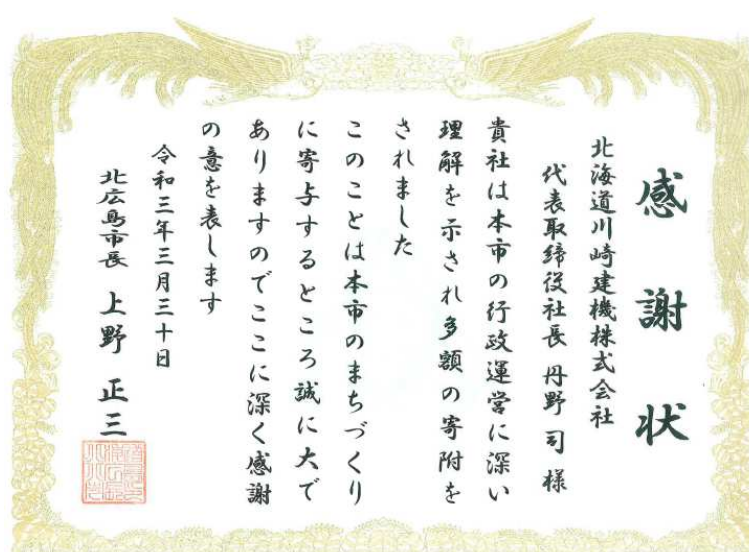 感謝状
北海道川崎建機株式会社
代表取締役社長 丹野 司 様
貴社は本市の行政運営に深い
理解を示され多額の寄附を
されました
このことは本市のまちづくり
に寄与するところ誠に大で
ありますのでここに深く感謝
の意を表します
令和三年三月三十日
北広島市長 上野 正三